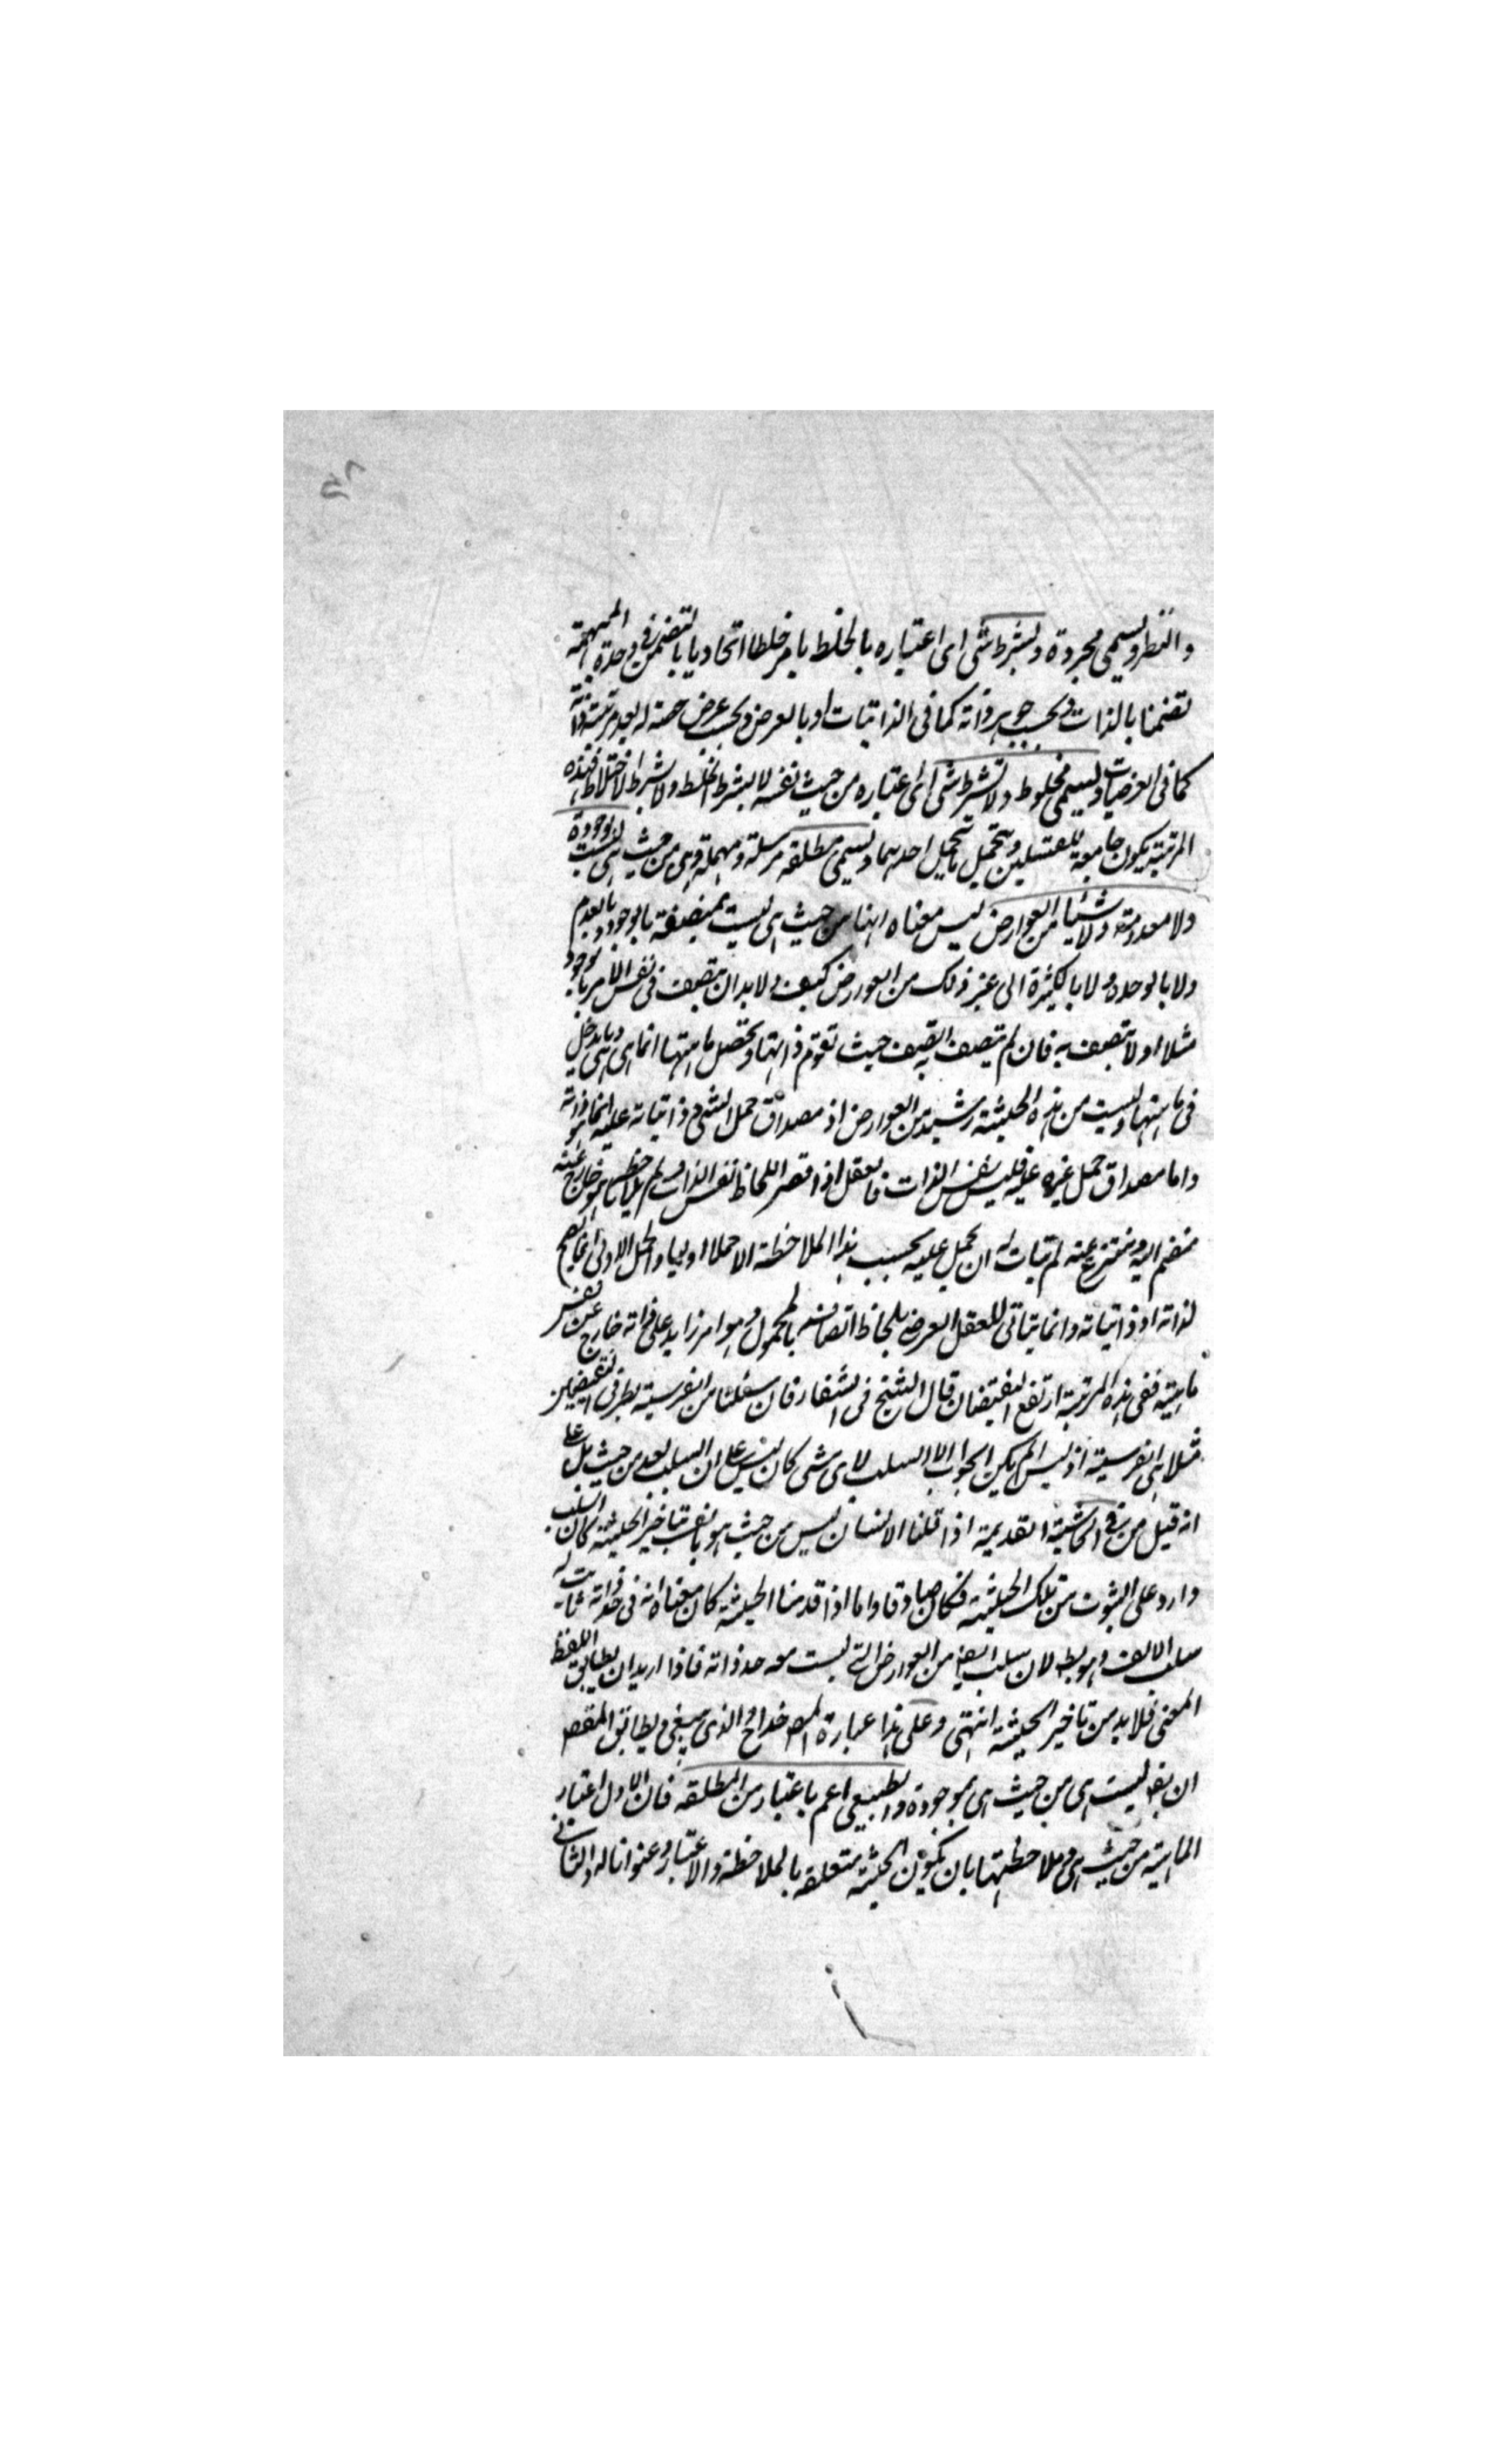 ۵۸
والنظر ويسمى مجردة وبشرط شئ اى اعتباره بالخلط بامر خلطا اتحاديا بالتضمن فى وحدة المبهمة
تضمنا بالذات وبحسب جوهر ذاته كما فى الذاتيات او بالعرض وبحسب عرض حصة له بعد مرتبته ذاته
كما فى العرضيات ويسمى مخلوط ولا بشرط شئ اى اعتباره من حيث نفسه لا بشرط الخلط ولا بشرط الاختلاط فهذه
المرتبة يكون جامعة للقسمين ويتحمل ما تحمل احدهما ويسمى مطلقة مرسلة ومهملة وهى من حيث هى ليست بموجودة
ولا معدومة ولا شيئا من العوارض ليس معناه انها من حيث هى ليست بمتصفة بالوجود وبالعدم
ولا بالوحدة ولا بالكثرة الى غير ذلك من العوارض كيف ولا بد ان تتصف فى نفس الامر بالوجود
مثلا او لا تتصف به فان لم يتصف به تتصف حيث تقوم ذاتها وتحصل ماهيتها انما هى هى وما يدخل
فى ماهيتها وليست من هذه الحيثية شئ من العوارض اذ مصداق حمل الشئ وذاتياته عليه انما هو ذاته
واما مصداق حمل غيره عليه فليس نفس الذات فالعقل اذا قصر اللحاظ نفس الذات ولم يلاحظ ما هو خارج عنه
منضم اليه ومنتزع عنه لم يتات له ان يحمل عليه بحسب هذا الملاحظة الا حملا اوليا والحمل الاولى انما يصح
لذاته او ذاتياته وانما يتاتى للعقل العرضى بلحاظ اتصافه بالمحمول وهو امر زايد على ذاته خارج عن نفس
ماهيته ففى هذه المرتبة ارتفع النقيضان قال الشيخ فى الشفا فان سئلنا من الفرسية بطرفى النقيضين
مثلا هى الفرسية اذ ليس لم يكن الجواب الا السلب لاى شئ كان ليس على ان السلب بعد من حيث بل على
انه قيل من فى الحاشية القديمة اذا قلنا الانسان ليس من حيث هو بالف بتاخير الحيثية كان السلب
وارد على الثبوت من تلك الحيثية فكان صادقا واما اذا قدمنا الحيثية كان معناه انه فى حد ذاته ثابت له
سلب الالف وهو بط لان سلب ايضا من العوارض التى ليست معه حد ذاته فاذا اريد ان يطابق اللفظ
المعنى فلا بد من تاخير الحيثية انتهى وعلى هذا عبارة المص خداج والذى ينبغى ويطابق المقصد
ان يقال ليست هى من حيث هى بموجودة والطبيعى اعم باعتبار من المطلقة فان الاول اعتبار
الماهية من حيث هى وملاحظتها بان يكون الحيثية متعلقة بالملاحظة والاعتبار وعنوانا له والثانى